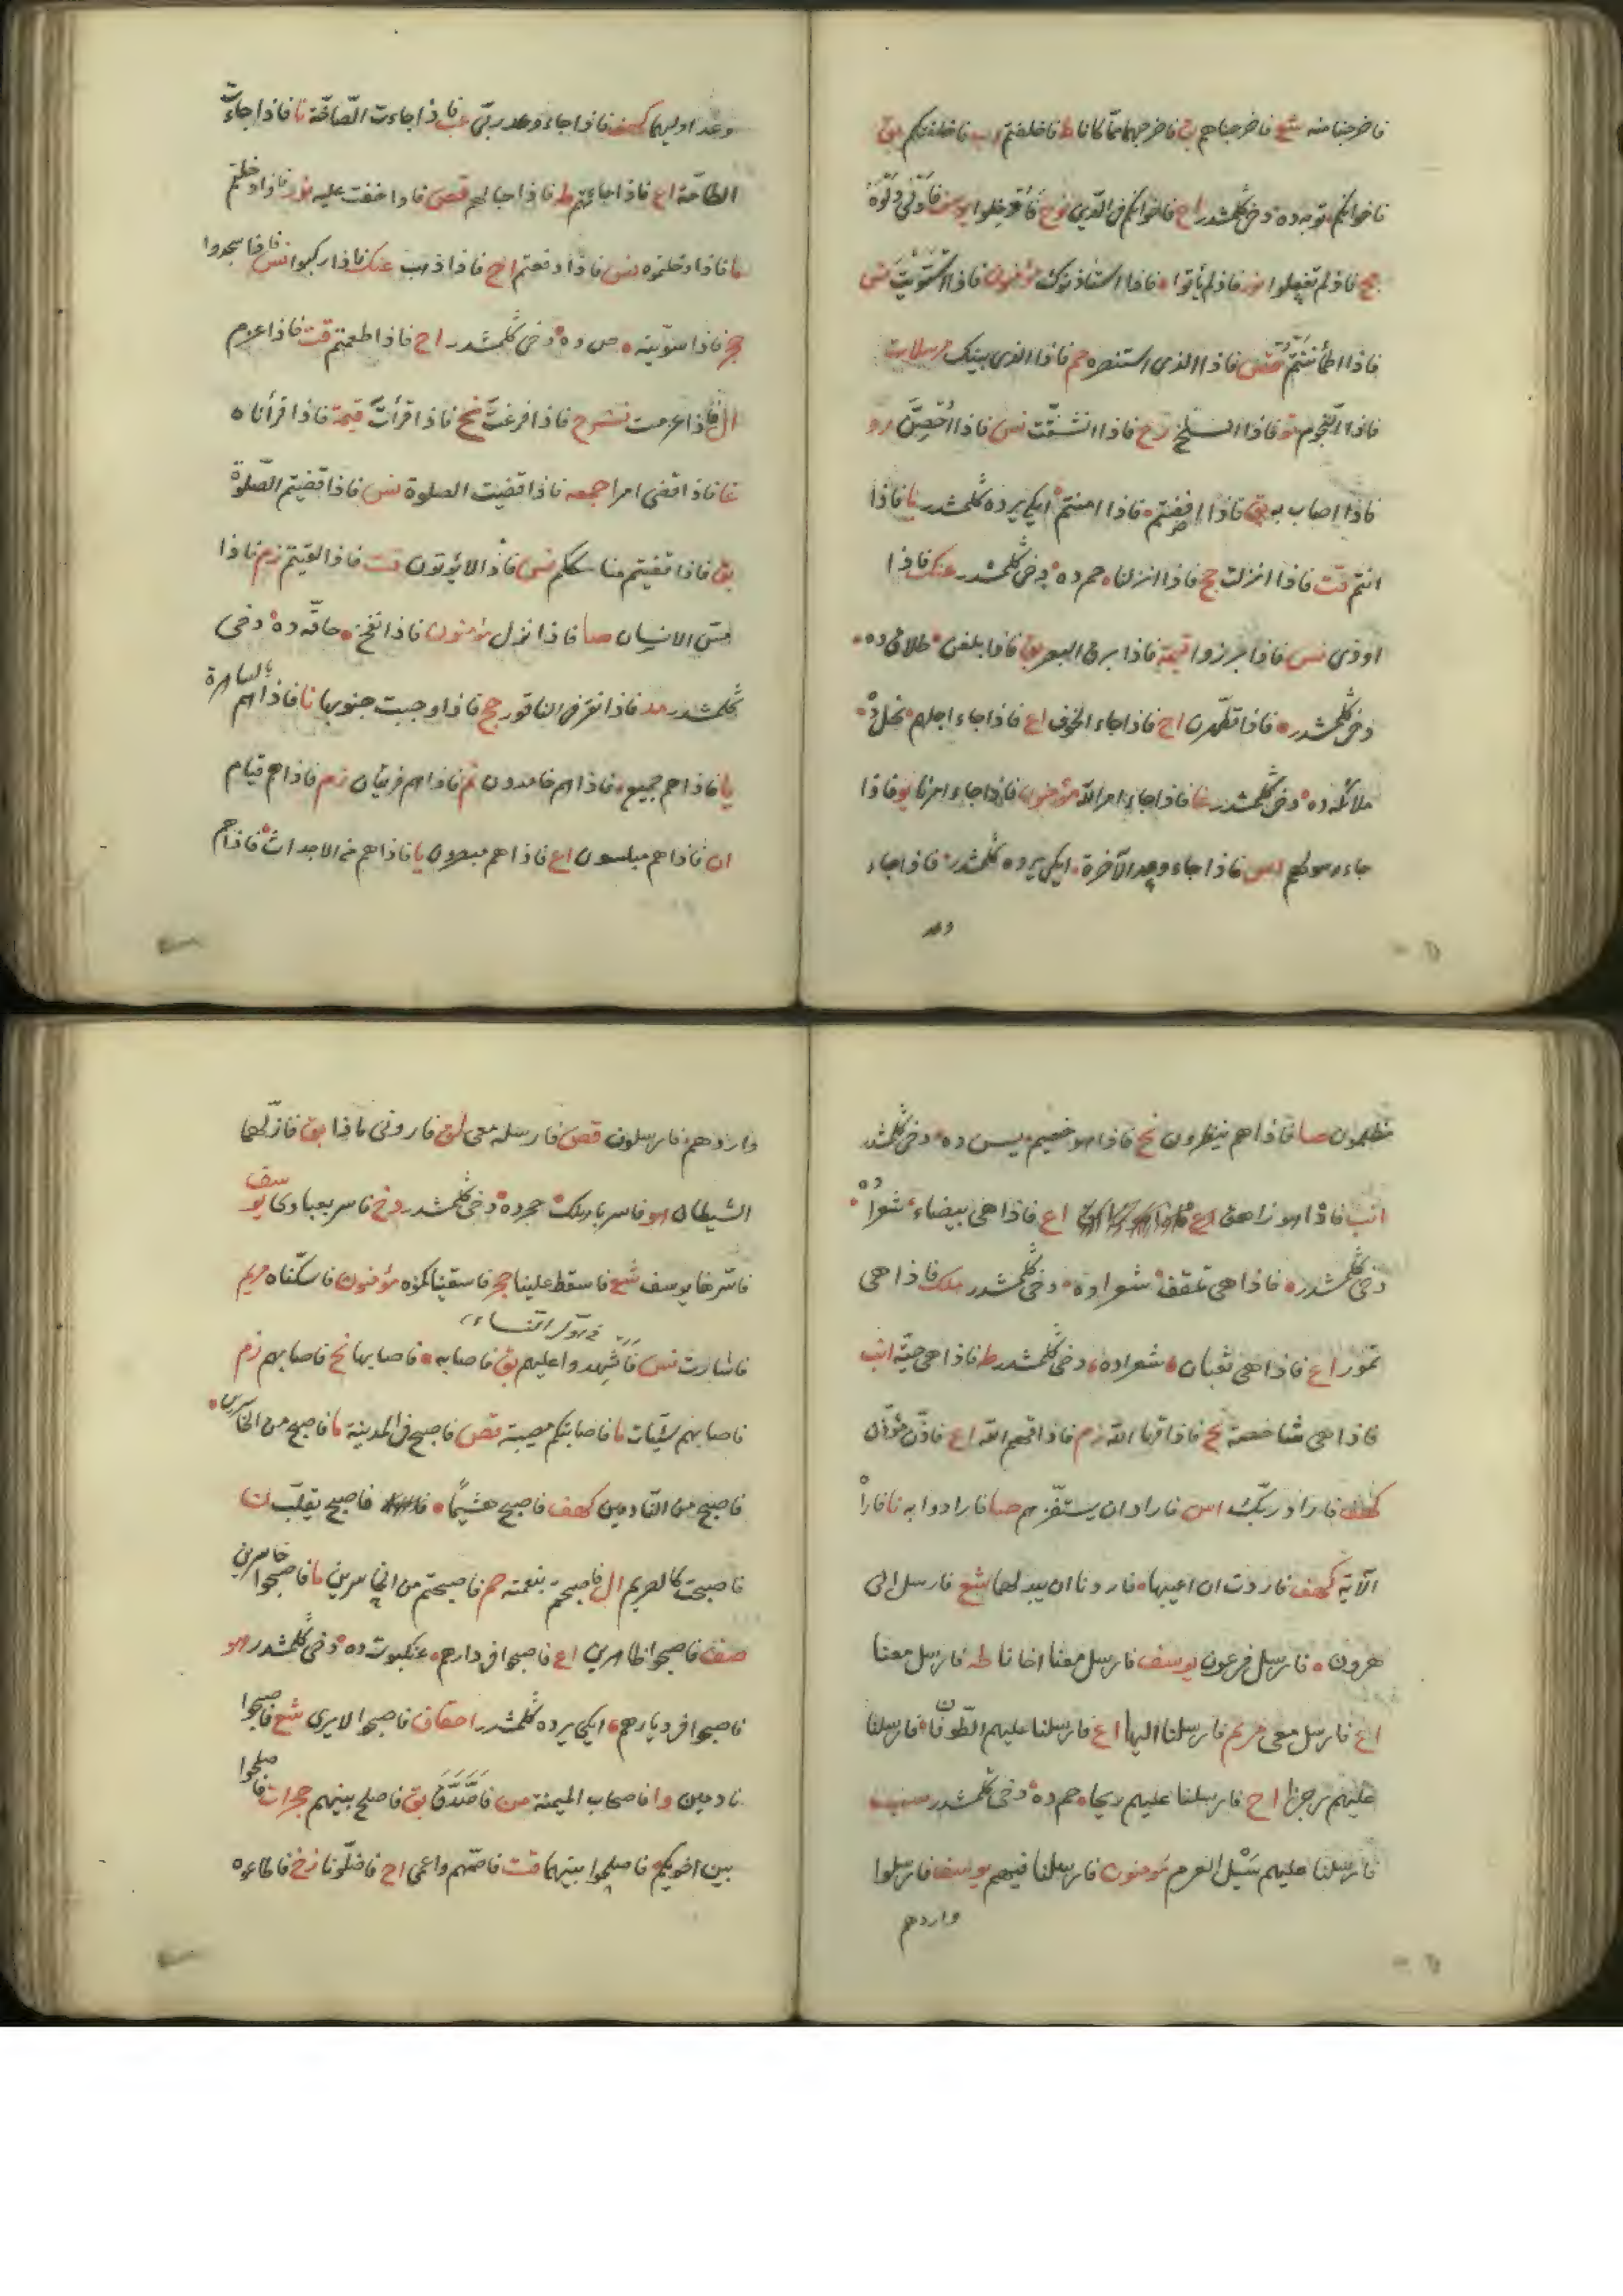 فاخرجنا منه شع فاخرجناهم بق فاخرجهما مما كانا ط فاخلفتم اب فاخلفتكم بق
فاخوانكم توبه ده دخى كلمشدر اح فاخوانكم فى الدين نوح فادخلوا يوسف فادلى دلوه
مج فاذ لم تفعلوا نور فاذ لم يأتوا ٥ فاذا استأذنوك مؤمنون فاذا استويت نس
فاذا اطمأننتم قصص فاذا الذى استنصره حم فاذا الذى بينك مرسلات
فاذا النجوم تو فاذا انسلخ رح فاذا انشقت نس فاذا احصن رو
فاذا اصاب به بق فاذا افضتم ٥ فاذا امنتم ايكى يرده كلمشدر يا فاذا
انتم قت فاذا انزلت حج فاذا انزلنا ٥ حم ده ٥ دخى كلمشدر عنك فاذا
اوذى نس فاذا برزوا قيمة فاذا برق البصر بق فاذا بلغن ٥ طلاق ده ٥
دخى كلمشدر ٥ فاذا تطهرن اح فاذا جاء الخوف اع فاذا جاء اجلهم ٥ نحل ده
ملائكه ده ٥ دخى كلمشدر غا فاذا جاء امر الله مؤمنون فاذا جاء امرنا يو فاذا
جاء رسولهم اس فاذا جاء وعد الآخرة ٥ ايكى يرده كلمشدر ٥ فاذا جاء
وعد
وعد اوليهما كهف فاذا جاء وعد ربى عب فاذا جاءت الصاخة نا فاذا جاءت
الطامة اع فاذا جاءتهم ط فاذا حبالهم قص فاذا خفت عليه نور فاذا دخلتم
ما فاذا دخلتموه نس فاذا دفعتم اح فاذا ذهب عنك فاذا ركبوا نس فاذا سجدوا
حجر فاذا سويته ٥ ص ده ٥ دخى كلمشدر اح فاذا طعمتم قت فاذا عزم
ال فاذا عزمت نشرح فاذا فرغت نح فاذا قرأت قيمة فاذا قرأناه
غا فاذا قضى امرا جمعه فاذا قضيت الصلوة نس فاذا قضيتم الصلوة
بق فاذا قضيتم مناسككم نس فاذا لا يؤتون قت فاذا لقيتم زم فاذا
مس الانسان صا فاذا نزل مؤمنون فاذا نفخ ٥ حاقه ده ٥ دخى
كلمشدر مد فاذا نقر فى الناقور حج فاذا وجبت جنوبها نا فاذا هم بالساهرة
يا فاذا هم جميع ٥ فاذا هم خامدون نم فاذا هم فريقان زم فاذا هم قيام
ان فاذا هم مبلسون اع فاذا هم مبصرون يا فاذا هم من الاجداث ٥ فاذا هم
مظلمون صا فاذا هم ينظرون نح فاذا هو خصيم ٥ يس ده ٥ دخى كلمشدر
انب فاذا هو زاهق اع فاذا هى بيضاء ٥ شعرا ده ٥
دخى كلمشدر ٥ فاذا هى تلقف ٥ شعرا ده ٥ دخى كلمشدر ملك فاذا هى
تمور اع فاذا هى ثعبان ٥ شعرا ده ٥ دخى كلمشدر ط فاذا هى حية انب
فاذا هى شاخصة نح فاذاقها الله زم فاذاقهم الله اع فاذن مؤذن
كهف فاراد ربك اس فاراد ان يستفزهم صا فارادوا به نا فاراه
الآية كهف فاردت ان اعيبها ٥ فاردنا ان يبدلهما شع فارسل الى
هرون ٥ فارسل فرعون يوسف فارسل معنا اخانا طه فارسل معنا
اع فارسل معى مريم فارسلنا اليها اع فارسلنا عليهم الطوفان ٥ فارسلنا
عليهم رجزا اح فارسلنا عليهم ريحا ٥ حم ده ٥ دخى كلمشدر سب
فارسلنا عليهم سيل العرم مؤمنون فارسلنا فيهم يوسف فارسلوا
واردهم
واردهم ٥ فارسلون قص فارسله معى لق فارونى ماذا بق فازلهما
الشيطان هو فاسر باهلك ٥ حجر ده ٥ دخى كلمشدر دخ فاسر بعبادى يوسف
فاسرها يوسف شع فاسقط علينا حجر فاسقيناكموه مؤمنون فاسكناه مريم
فاشارت نس فاشهدوا عليهم بق فاصابه ٥ فاصابها نح فاصابهم زم
فاصابهم سيئات ما فاصابتكم مصيبة قص فاصبح فى المدينة ما فاصبح من الخاسرين ٥
فاصبح من النادمين كهف فاصبح هشيما ٥ فاصبح يقلب ن
فاصبحت كالصريم ال فاصبحتم بنعمته حم فاصبحتم من الخاسرين ما فاصبحوا خاسرين
صف فاصبحوا ظاهرين اع فاصبحوا فى دارهم ٥ عنكبوت ده ٥ دخى كلمشدر هو
فاصبحوا فى ديارهم ٥ ايكى يرده كلمشدر احقاف فاصبحوا لا يرى شع فاصبحوا
نادمين وا فاصحاب الميمنة من فاصدق بق فاصلح بينهم حجرات فاصلحوا
بين اخويكم ٥ فاصلحوا بينهما قت فاصمهم واعمى اح فاضلونا زخ فاطاعوه